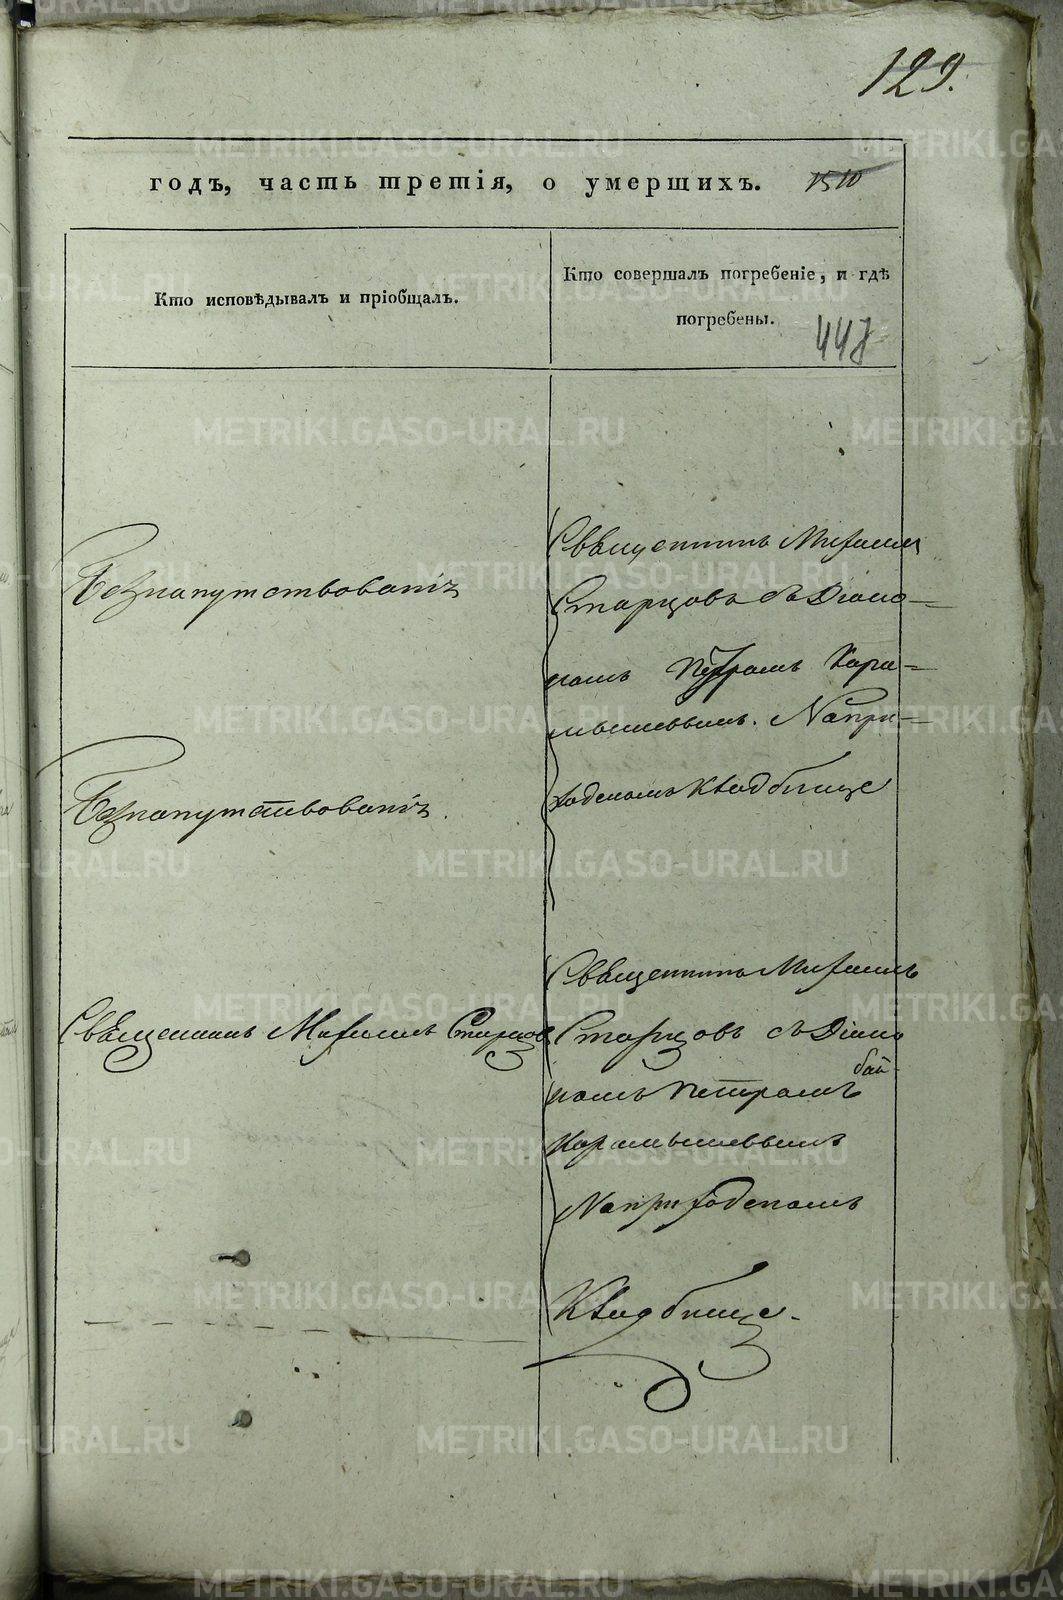 129.
годъ, часть третія, о умершихъ. 1510
Кто исповѣдывалъ и пріобщалъ.
Кто совершалъ погребеніе, и гдѣ
погребены.
447
Безнапутствованія
Священникъ Михаилъ
Старцовъ съ Діако-
номъ Петромъ Кара-
мышевымъ. На при-
ходскомъ кладбище
Безнапутствованія.
Священникъ Михаилъ Старцов
Священникъ Михаилъ
Старцовъ съ Діако
номъ Петромъ
Карамышевымъ
На приходскомъ
Кладбище.
METRIKI.GASO-URAL.RU